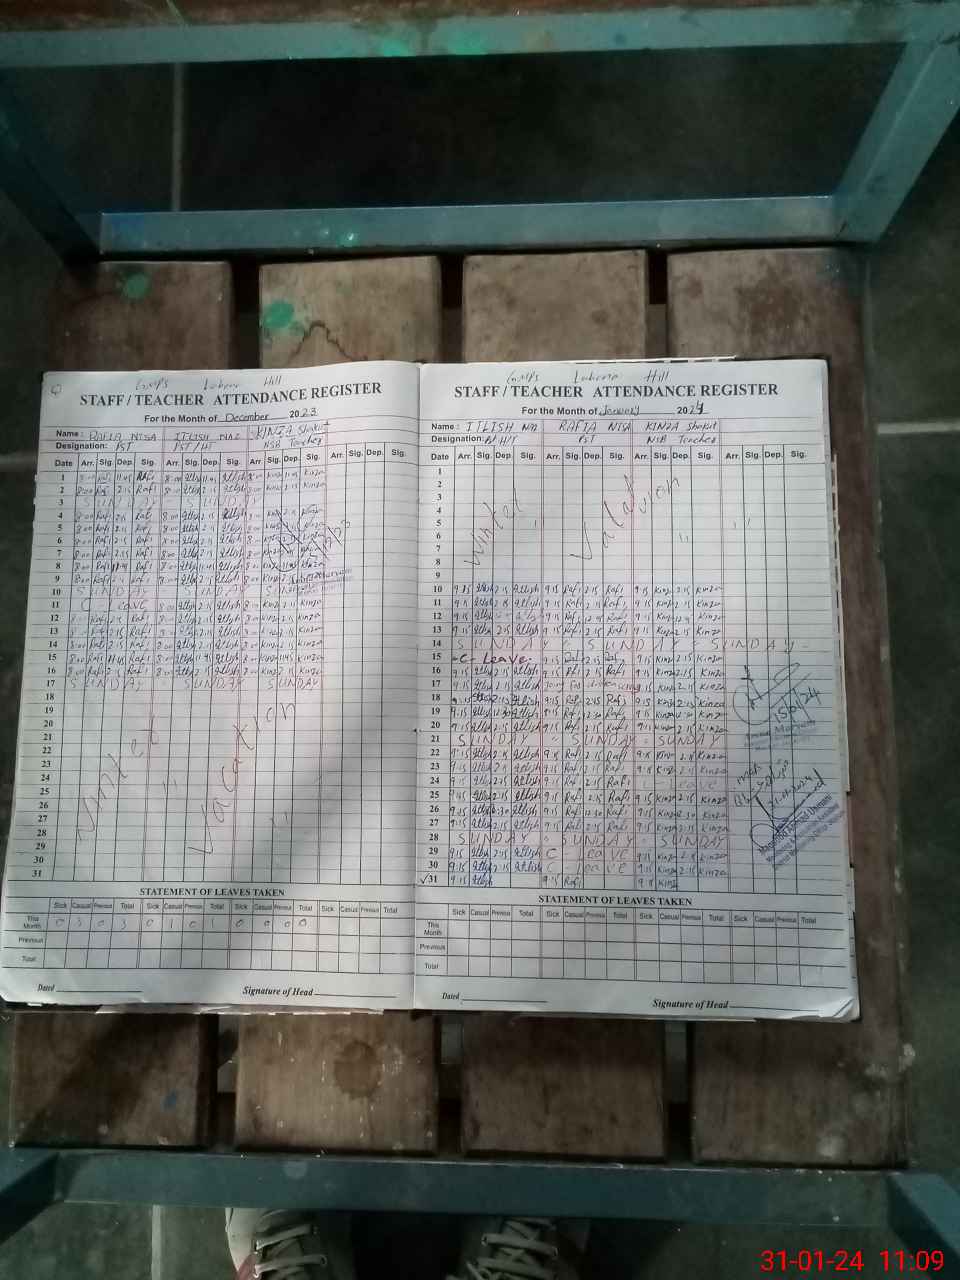 GMPS Lahona Hill
STAFF / TEACHER ATTENDANCE REGISTER
For the Month of December 2023
Name : RAFIA NISA ITLISH NAZ KINZA Shakil
Designation: PST PST/H NSB Teacher
Date Arr. Sig. Dep. Sig. Arr. Sig. Dep. Sig. Arr. Sig. Dep. Sig. Arr. Sig. Dep. Sig.
1 8:00 Rafi 11:45 Rafi 8:00 Itlish 11:45 Itlish 8:00 Kinza 11:45 Kinza
2 8:00 Rafi 2:15 Rafi 8:00 Itlish 2:15 Itlish 8:00 Kinza 2:15 Kinza
3 SUNDAY SUNDAY
4 8:00 Rafi 2:15 Rafi 8:00 Itlish 2:15 Itlish 8:00 Kinza 2:15 Kinza
5 8:00 Rafi 2:15 Rafi 8:00 Itlish 2:15 Itlish 8:00 Kinza
6 8:00 Rafi 2:15 Rafi 8:00 Itlish 2:15 Itlish 8:00 Kinza
7 8:00 Rafi 2:15 Rafi 8:00 Itlish 2:15 Itlish 8:00 Kinza
8 8:00 Rafi Rafi 8:00 Itlish Itlish 8:00 Kinza Kinza
9 8:00 Rafi Rafi 8:00 Itlish 2:15 Itlish 8:00 Kinza 2:15 Kinza
10 SUNDAY SUNDAY SUNDAY
11 C - Leave 8:00 Itlish 2:15 Itlish 8:00 Kinza 2:15 Kinza
12 8:00 Rafi 2:15 Rafi 8:00 Itlish 2:15 Itlish 8:00 Kinza 2:15 Kinza
13 8:00 Rafi 2:15 Rafi 8:00 Itlish 2:15 Itlish 8:00 Kinza 2:15 Kinza
14 8:00 Rafi 2:15 Rafi 8:00 Itlish 2:15 Itlish 8:00 Kinza 2:15 Kinza
15 8:00 Rafi 11:45 Rafi 8:00 Itlish 11:45 Itlish 8:00 Kinza 11:45 Kinza
16 8:00 Rafi 2:15 Rafi 8:00 Itlish 2:15 Itlish 8:00 Kinza 2:15 Kinza
17 SUNDAY - SUNDAY SUNDAY
18
19
20
21
22
23
24
25
26
27
28
29
30
31
Winter " Vacation "
STATEMENT OF LEAVES TAKEN
Sick Casual Previous Total Sick Casual Previous Total Sick Casual Previous Total Sick Casual Previous Total
This Month 0 3 0 3 0 1 0 0 0 0 0
Previous
Total
Dated
Signature of Head
GMPS Lahona Hill
STAFF / TEACHER ATTENDANCE REGISTER
For the Month of January 2024
Name : ITLISH NAZ RAFIA NISA KINZA Shakil
Designation: PST NSB Teacher
Date Arr. Sig. Dep. Sig. Arr. Sig. Dep. Sig. Arr. Sig. Dep. Sig. Arr. Sig. Dep. Sig.
1
2
3
4
5
6
7
8
9
Winter " Vacation "
10 9:15 Itlish 2:15 Itlish 9:15 Rafi 2:15 Rafi 9:15 Kinza 2:15 Kinza
11 9:15 Itlish 2:15 Itlish 9:15 Rafi 2:15 Rafi 9:15 Kinza 2:15 Kinza
12 9:15 Itlish Itlish 9:15 Rafi Rafi 9:15 Kinza Kinza
13 9:15 Itlish 2:15 Itlish 9:15 Rafi 2:15 Rafi 9:15 Kinza 2:15 Kinza
14 SUNDAY - SUNDAY SUNDAY -
15 C- Leave 9:15 2:15 9:15 Kinza 2:15 Kinza
16 9:15 Itlish 2:15 Itlish 9:15 Rafi 2:15 Rafi 9:15 Kinza 2:15 Kinza
17 9:15 Itlish 2:15 Itlish 9:15 Kinza 2:15 Kinza
18 9:15 2:15 Itlish 9:15 Rafi 2:45 Rafi 9:15 Kinza 2:15 Kinza
19 9:15 Itlish 12:30 Itlish 9:15 Rafi 12:30 Rafi 9:15 Kinza 12:30 Kinza
20 9:15 Itlish 2:15 Itlish 9:15 Rafi 2:15 Rafi 9:15 Kinza 2:15 Kinza
21 SUNDAY - SUNDAY - SUNDAY
22 9:15 Itlish 2:15 Itlish 9:15 Rafi 2:15 Rafi 9:15 Kinza 2:15 Kinza
23 9:15 Itlish 2:15 Itlish 9:15 Rafi 2:15 Rafi 9:15 Kinza 2:15 Kinza
24 9:15 Itlish 2:15 Itlish 9:15 Rafi 2:15 Rafi - Leave
25 9:15 Itlish 2:15 Itlish 9:15 Rafi 2:15 Rafi 9:15 Kinza 2:15 Kinza
26 9:15 Itlish 12:30 Itlish 9:15 Rafi 12:30 Rafi 9:15 Kinza 12:30 Kinza
27 9:15 Itlish 2:15 Itlish 9:15 Rafi 2:15 Rafi 9:15 Kinza 2:15 Kinza
28 SUNDAY - SUNDAY - SUNDAY
29 9:15 Itlish 2:15 Itlish C Leave 9:15 Kinza 2:15 Kinza
30 9:15 Itlish 2:15 Itlish C Leave 9:15 Kinza 2:15 Kinza
31 9:15 Itlish 9:15 Rafi 9:15 Kinza
15/01/24
STATEMENT OF LEAVES TAKEN
Sick Casual Previous Total Sick Casual Previous Total Sick Casual Previous Total Sick Casual Previous Total
This Month
Previous
Total
Dated
Signature of Head
31-01-24 11:09